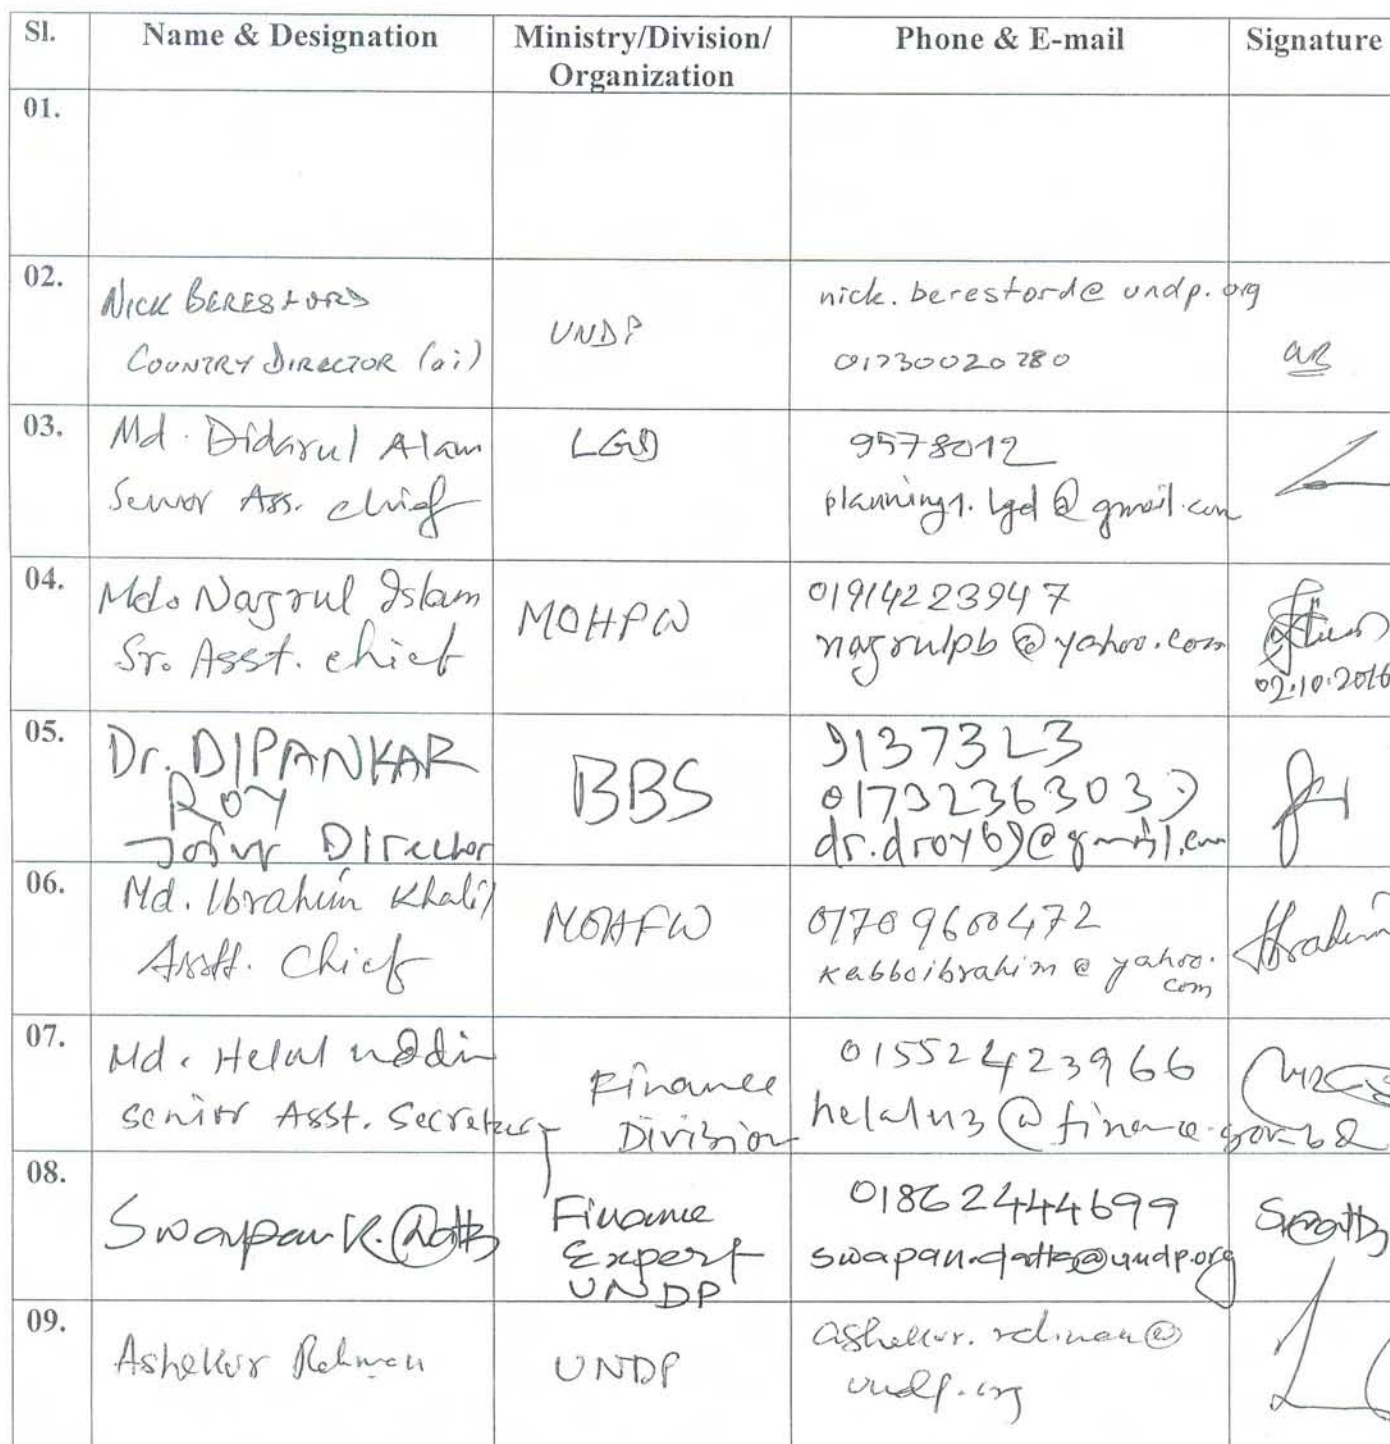 Sl. Name & Designation Ministry/Division/ Phone & E-mail Signature
Organization
01.
02.
NICK BERESFORD
COUNTRY DIRECTOR (ai)
UNDP
nick.beresford@undp.org
01730020780
03.
Md. Didarul Alam
Senior Ass. chief
LGD
9578012
planning1.lgd@gmail.com
04.
Md. Nazrul Islam
Sr. Asst. chief
MOHPW
01914223947
nazrulpb@yahoo.com
02.10.2016
05.
Dr. DIPANKAR
Roy
Joint Director
BBS
9137323
01732363039
dr.droy69@gmail.com
06.
Md. Ibrahim Khalil
Asstt. Chief
MOHFW
01709600472
kabboibrahim@yahoo.
com
Ibrahim
07.
Md. Helal uddin
senior Asst. Secretary
Finance
Division
01552423966
helalu3@finance.gov.bd
08.
Swapan K. Datta
Finance
Expert
UNDP
01862444699
swapan.datta@undp.org
SKDatta
09.
Ashekur Rahman
UNDP
ashekur.rahman@
undp.org